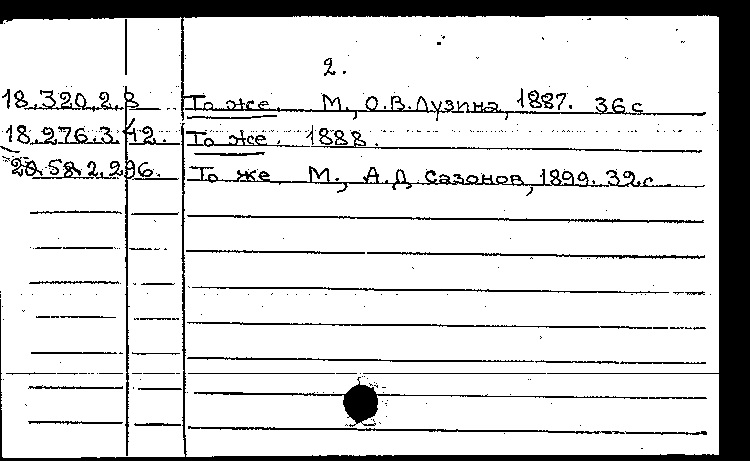 2.
18.320.2.8 То же. М., О.В.Лузина, 1887. 36 с
18.276.3.42. То же. 1888.
28.58.2.296. То же. М., А.Д. Сазонов, 1899. 32 с.